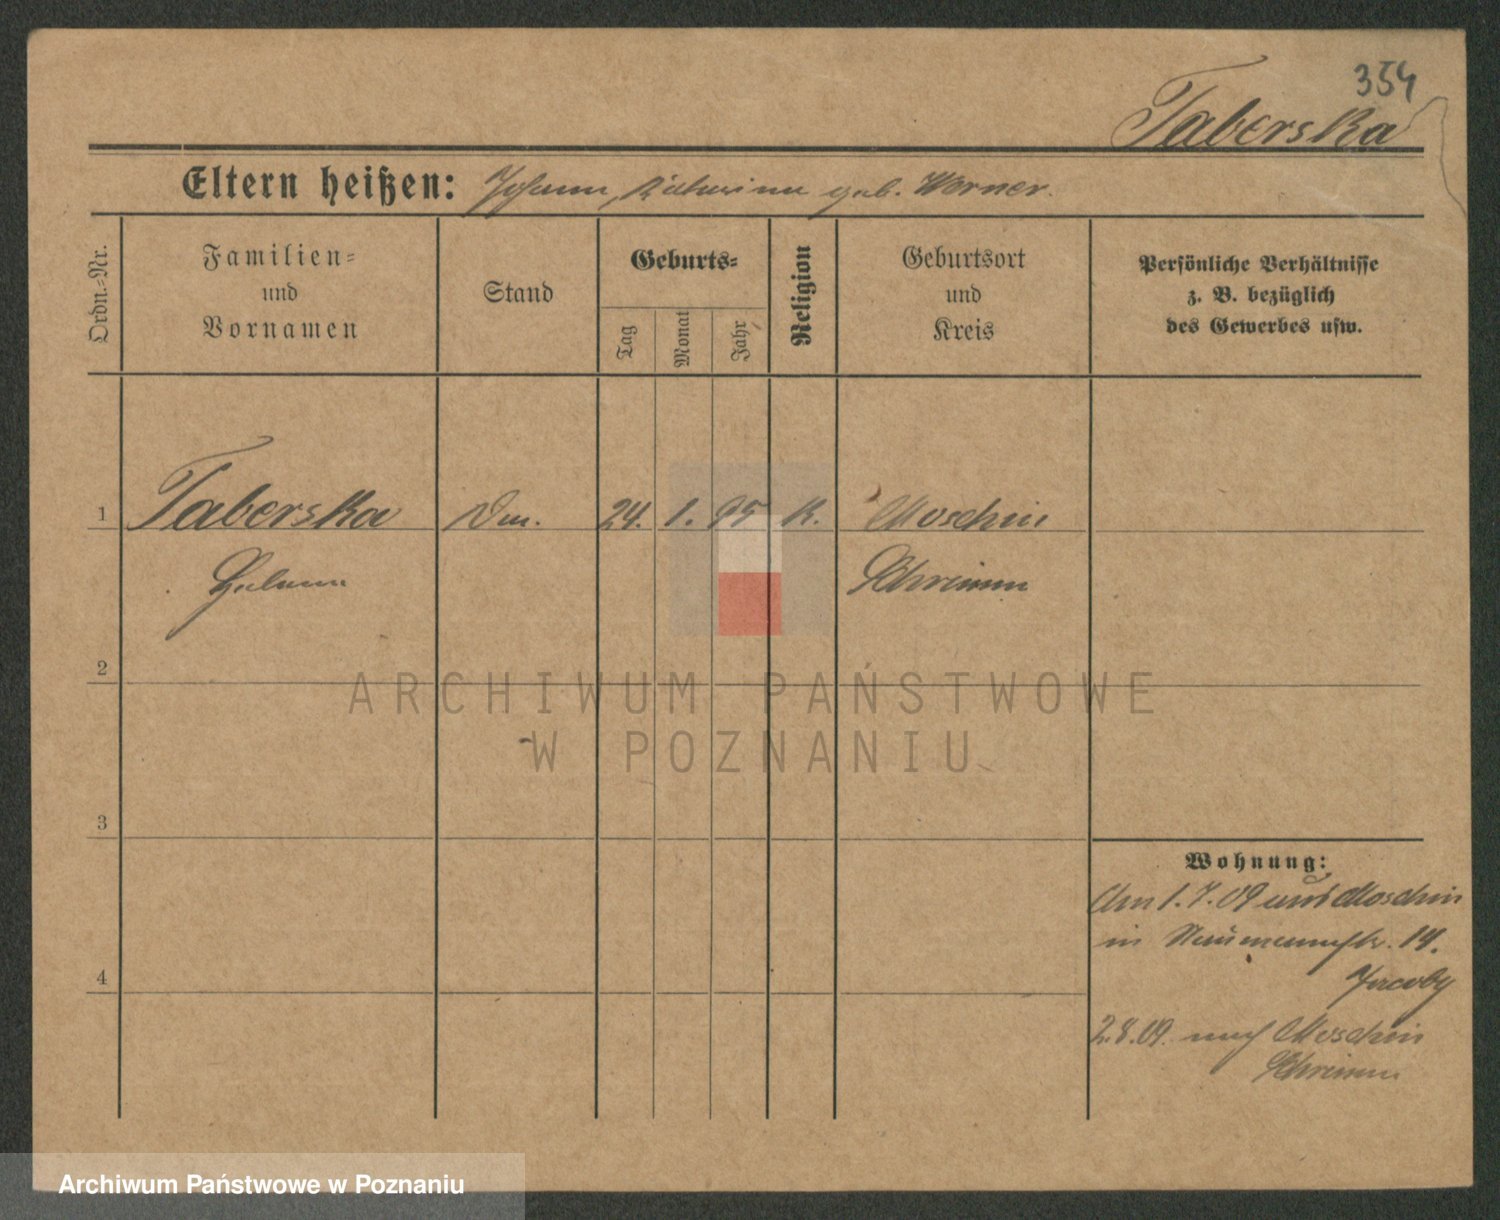 354
Taberska
Eltern heißen: Johann, Katharina geb. Werner.
Ordn.-Nr.
Familien-
und
Vornamen
Stand
Geburts-
Tag
Monat
Jahr
Religion
Geburtsort
und
Kreis
Persönliche Verhältnisse
z. B. bezüglich
des Gewerbes usw.
1 Taberska 24. 1. 95 K. Moschin
Helena Schrimm
2
3
4
Wohnung:
Am 1.7.09 aus Moschin
in Naumannstr. 14.
Jacoby
2.8.09. nach Moschin
Schrimm
ARCHIWUM PAŃSTWOWE
W POZNANIU
Archiwum Państwowe w Poznaniu